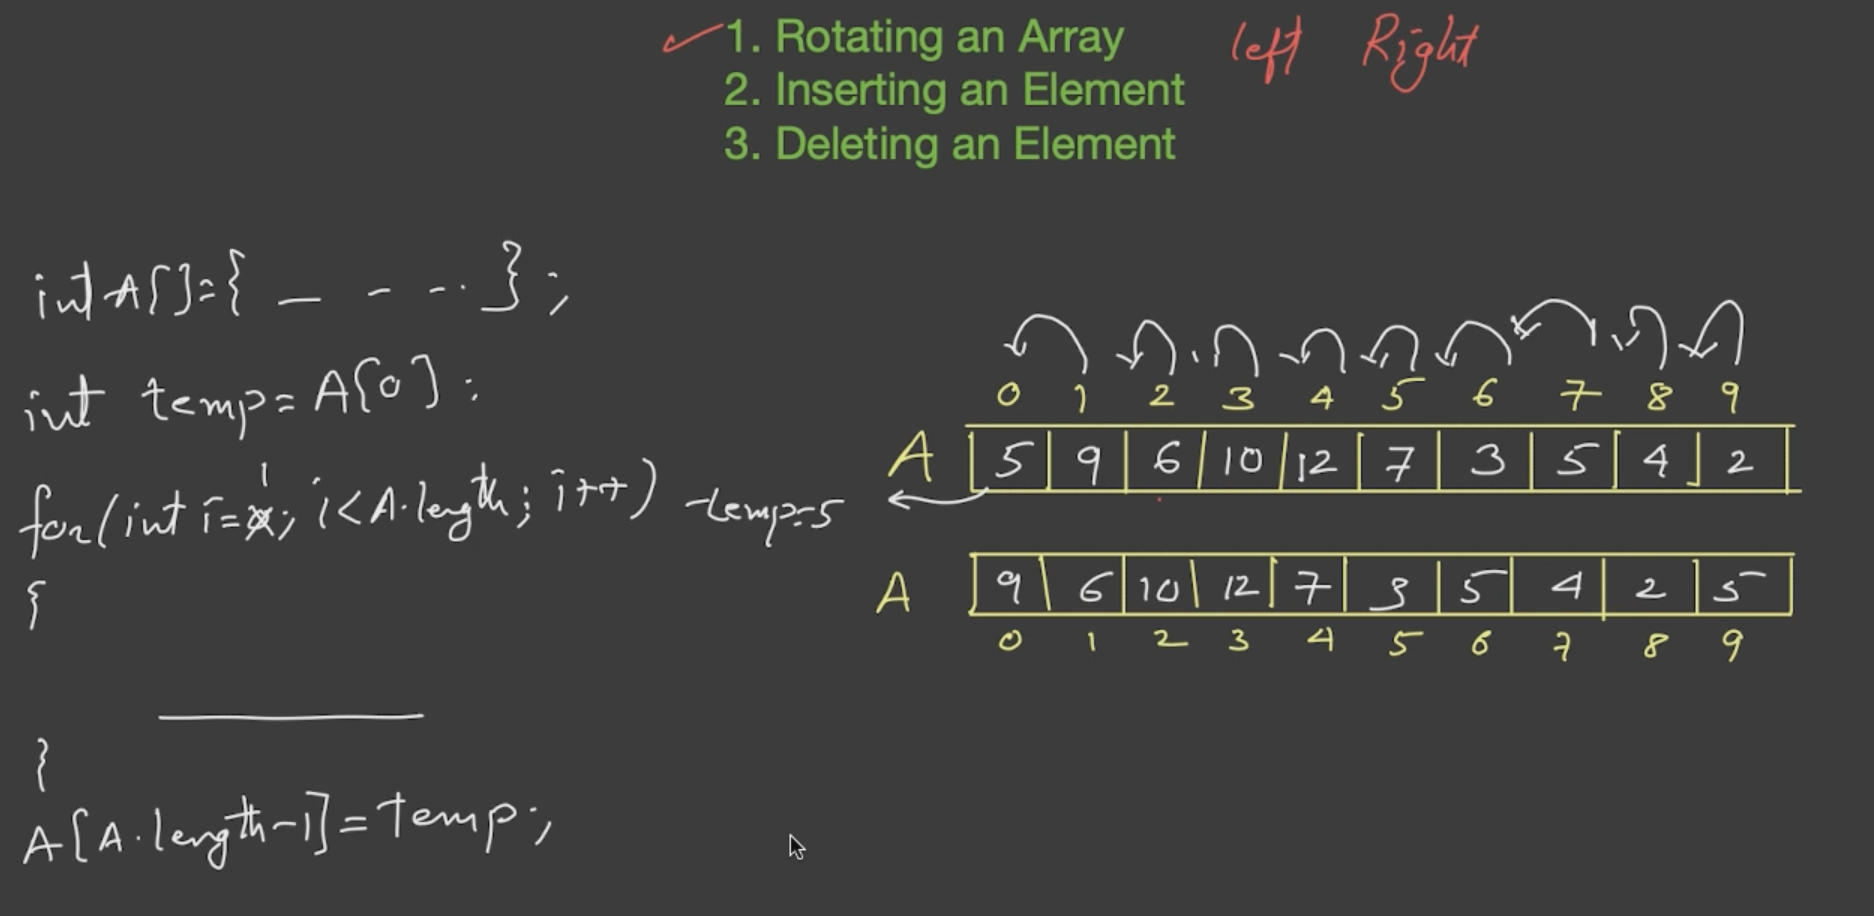 1. Rotating an Array left Right
2. Inserting an Element
3. Deleting an Element
int A[]={ _ - - .. };
int temp=A[0];
for(int i=1; i<A.length; i++)
{
}
A[A.length-1]=temp;
temp=5
0 1 2 3 4 5 6 7 8 9
A 5 9 6 10 12 7 3 5 4 2
A 9 6 10 12 7 3 5 4 2 5
0 1 2 3 4 5 6 7 8 9